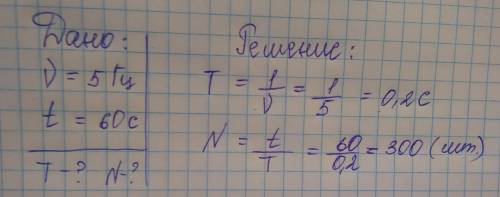 Дано:
ν = 5 Гц
t = 60 с
T - ? N - ?
Решение:
T = 1/ν = 1/5 = 0,2 с
N = t/T = 60/0,2 = 300 (шт)